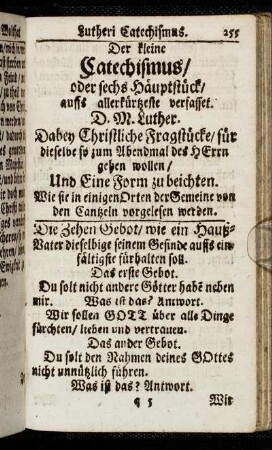 Lutheri Catechismus. 255
Der kleine
Catechismus/
oder sechs Häuptstück/
auffs allerkürtzeste verfasset.
D. M. Luther.
Dabey Christliche Fragstücke/ für
dieselbe so zum Abendmal des HErrn
gehen wollen/
Und Eine Form zu beichten.
Wie sie in einigen Orten der Gemeine von
den Cantzeln vorgelesen werden.
Die Zehen Gebot/ wie ein Hauß-
Vater dieselbige seinem Gesinde auffs ein-
fältigste fürhalten soll.
Das erste Gebot.
Du solt nicht andere Götter habē neben
mir. Was ist das? Antwort.
Wir sollen GOTT über alle Dinge
fürchten/ lieben und vertrauen.
Das ander Gebot.
Du solt den Nahmen deines GOttes
nicht unnützlich führen.
Was ist das? Antwort.
q 5 Wir